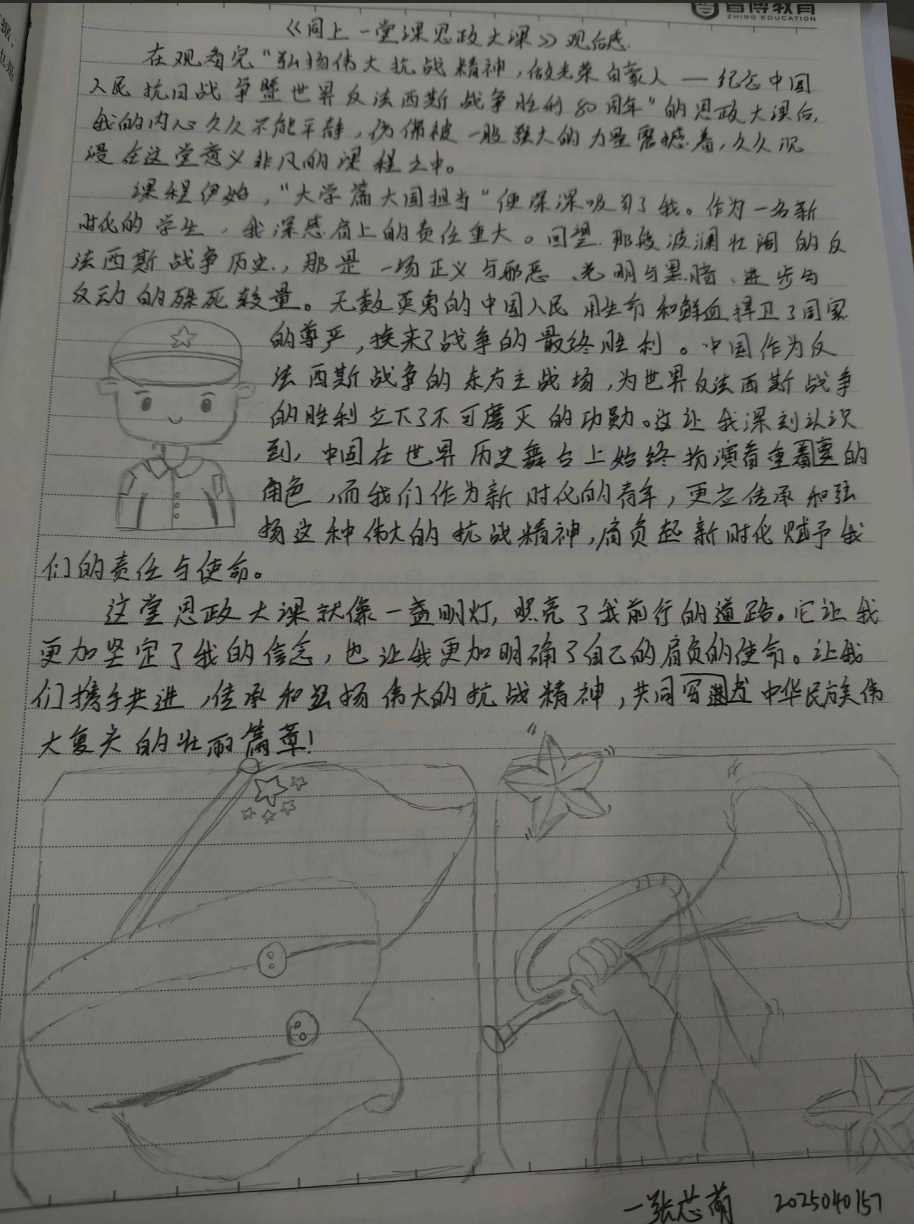 智博教育
ZHIBO EDUCATION
《同上一堂课思政大课》观后感
在观看完“弘扬伟大抗战精神，做光荣自豪人 — 纪念中国
人民抗日战争暨世界反法西斯战争胜利80周年”的思政大课后，
我的内心久久不能平静，仿佛被一股强大的力量震撼着，久久沉
浸在这堂意义非凡的课程之中。
课程伊始，“大学篇大国担当”便深深吸引了我。作为一名新
时代的学生，我深感肩上的责任重大。回望那段波澜壮阔的反
法西斯战争历史，那是一场正义与邪恶、光明与黑暗、进步与
反动的殊死较量。无数英勇的中国人民用生命和鲜血捍卫了国家
的尊严，换来了战争的最终胜利。中国作为反
法西斯战争的东方主战场，为世界反法西斯战争
的胜利立下了不可磨灭的功勋。这让我深刻认识
到，中国在世界历史舞台上始终扮演着重要的
角色，而我们作为新时代的青年，更应传承和弘
扬这种伟大的抗战精神，肩负起新时代赋予我
们的责任与使命。
这堂思政大课就像一盏明灯，照亮了我前行的道路。它让我
更加坚定了我的信念，也让我更加明确了自己的肩负的使命。让我
们携手共进，传承和弘扬伟大的抗战精神，共同写中华民族伟
大复兴的壮丽篇章！
—张芯萌 2025040157